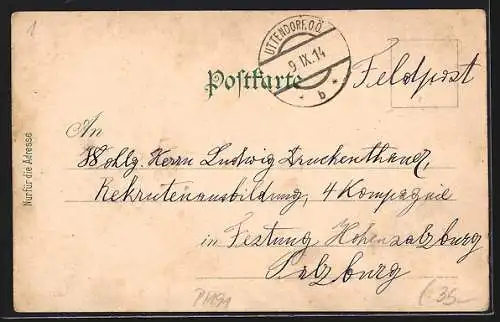 1
UTTENDORF, O.Ö.
9. IX. 14
* b *
Postkarte
Feldpost
An
Wohlg. Herrn Ludwig Druckenthaner,
Rekrutenausbildung, 4 Kompagnie
in Festung Hohensalzburg
Salzburg
Nur für die Adresse